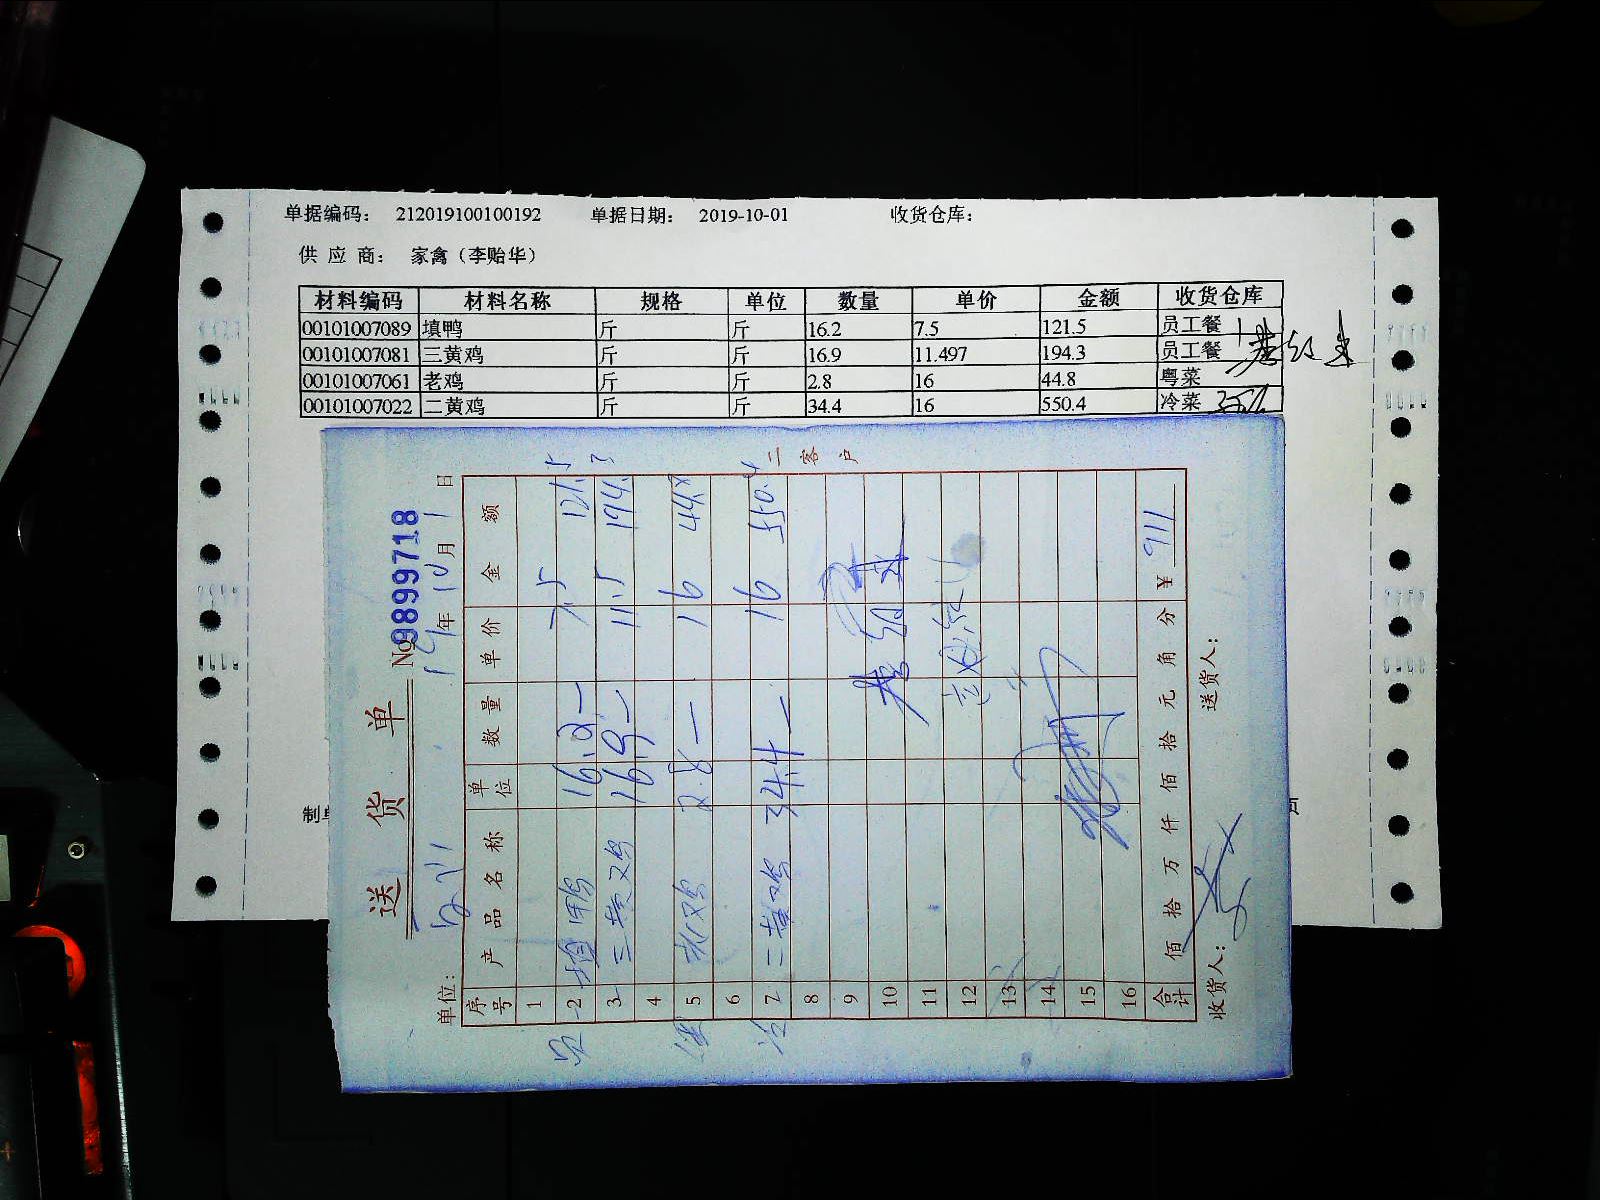 单据编码： 212019100100192 单据日期： 2019-10-01 收货仓库：
供 应 商： 家禽（李贻华）
材料编码 材料名称 规格 单位 数量 单价 金额 收货仓库
00101007089 填鸭 斤 斤 16.2 7.5 121.5 员工餐
00101007081 三黄鸡 斤 斤 16.9 11.497 194.3 员工餐
00101007061 老鸡 斤 斤 2.8 16 44.8 粤菜
00101007022 二黄鸡 斤 斤 34.4 16 550.4 冷菜
制单
页
送 货 单 No 9899718
单位： 19年 10月 1日
序号 产品名称 单位 数量 单价 金额
1
2 填鸭 16.2 7.5 121.5
3 三黄鸡 16.9 11.5 194.3
4
5 老鸡 2.8 16 44.8
6
7 二黄鸡 34.4 16 550.4
8
9
10
11
12
13
14
15
16
合计 佰 拾 万 仟 佰 拾 元 角 分 ¥ 911
收货人： 送货人：
二客户